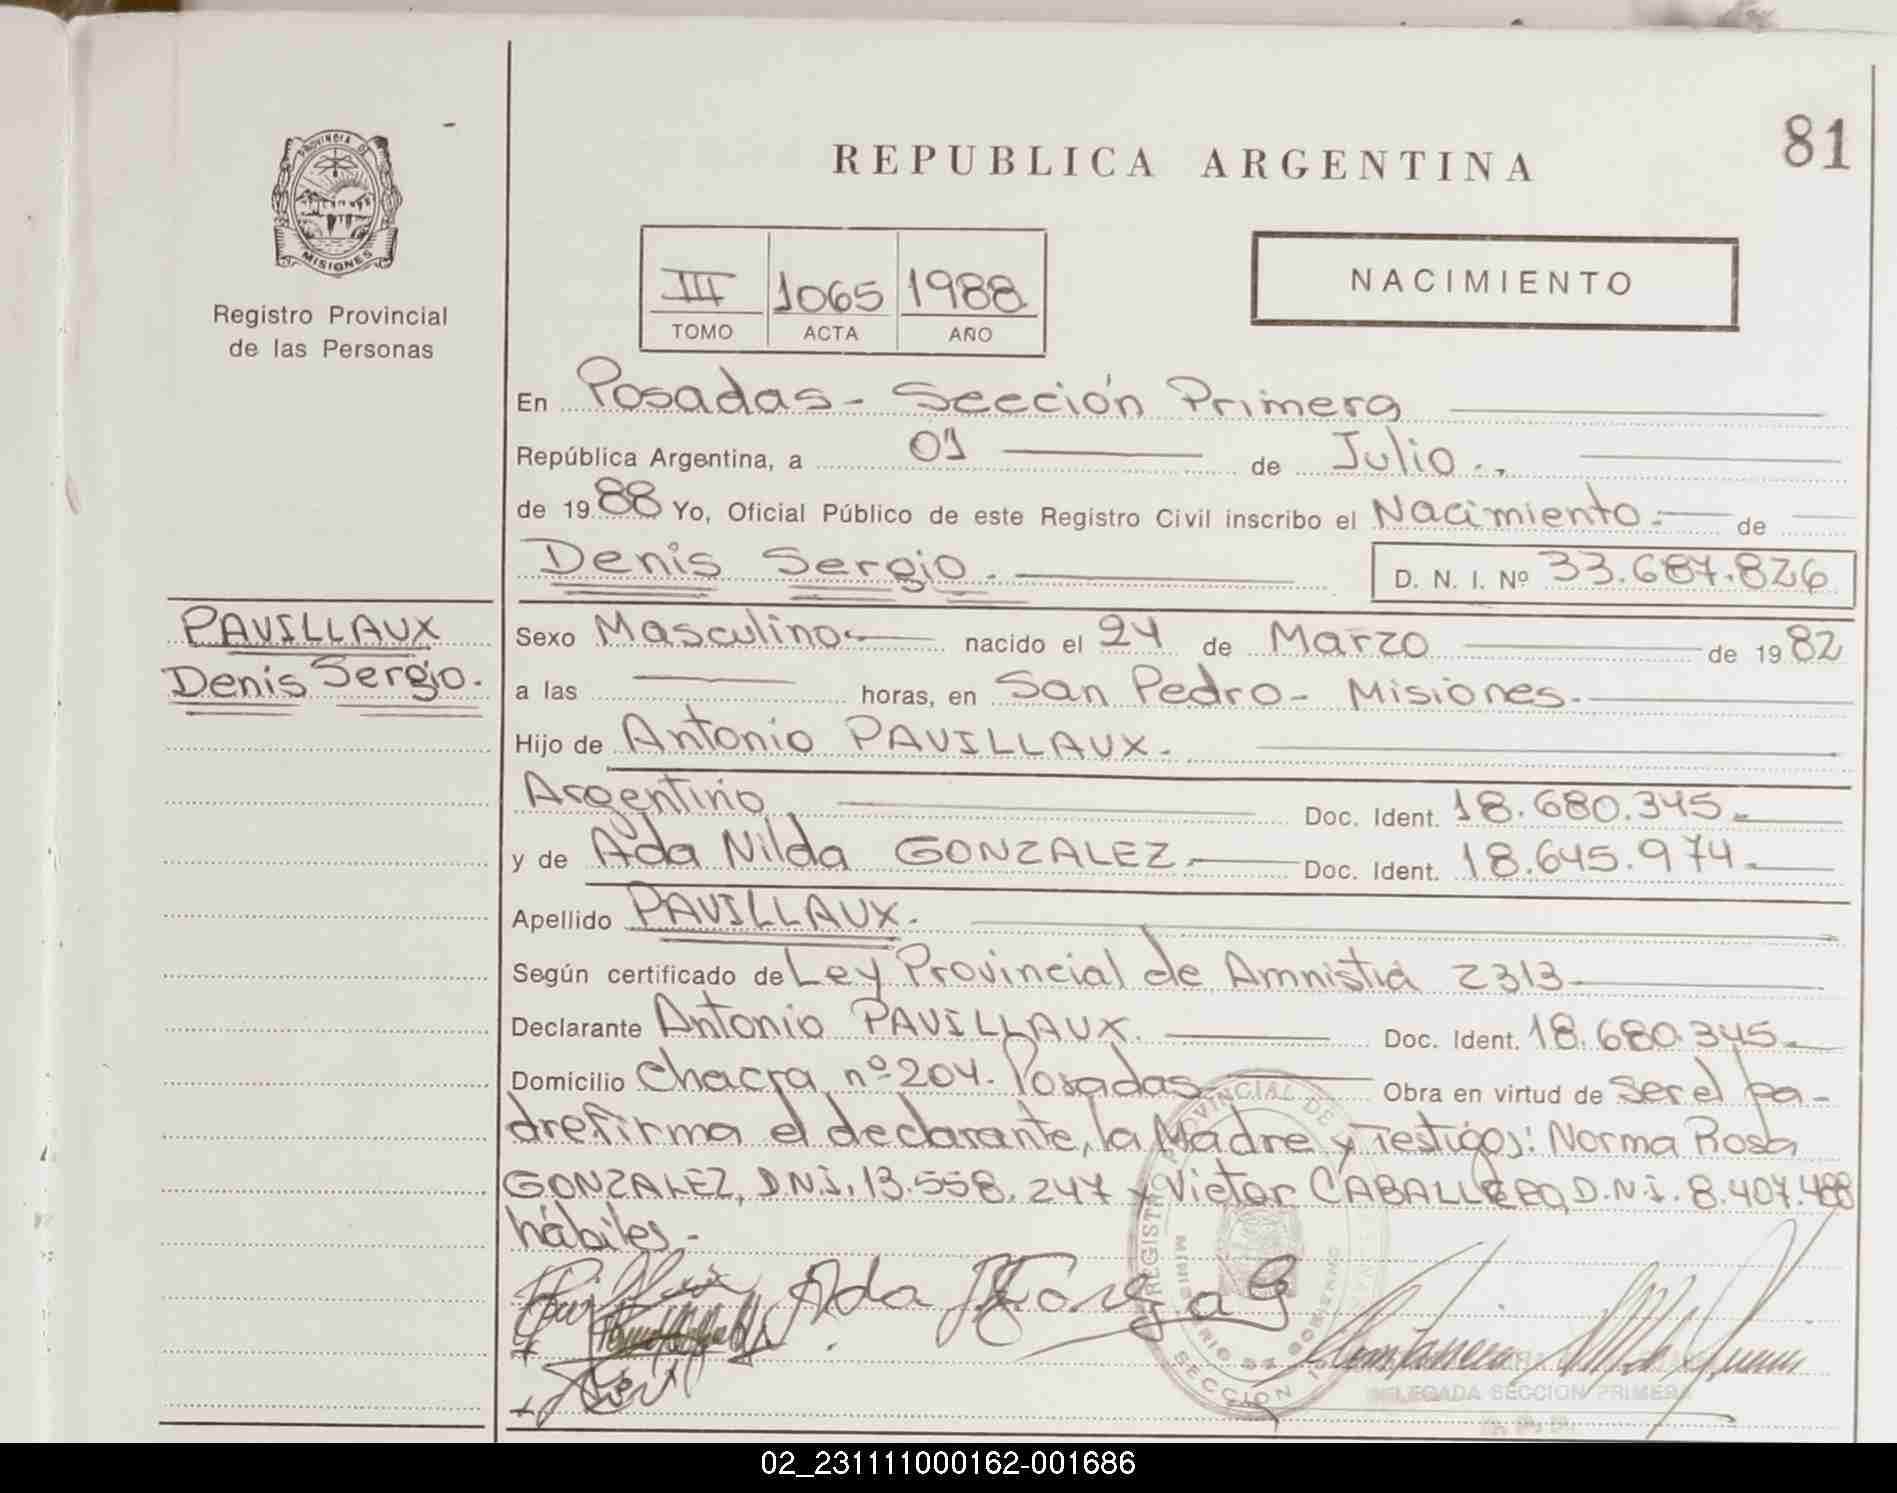 81
PROVINCIA DE
MISIONES
Registro Provincial
de las Personas
REPUBLICA ARGENTINA
III 1065 1988
TOMO ACTA AÑO
NACIMIENTO
En Posadas - Sección Primera
República Argentina, a 01 de Julio.
de 1988 Yo, Oficial Público de este Registro Civil inscribo el Nacimiento. de
Denis Sergio. D. N. I. Nº 33.687.826
PAVILLAUX
Denis Sergio.
Sexo Masculino nacido el 24 de Marzo de 1982
a las horas, en San Pedro - Misiones.
Hijo de Antonio PAVILLAUX.
Argentino Doc. Ident. 18.680.345.
y de Ada Nilda GONZALEZ. Doc. Ident. 18.645.974.
Apellido PAVILLAUX.
Según certificado de Ley Provincial de Amnistia 2313
Declarante Antonio PAVILLAUX. Doc. Ident. 18.680.345.
Domicilio Chacra nº 204. Posadas Obra en virtud de ser el pa-
dre firma el declarante, la Madre y Testigos: Norma Rosa
GONZALEZ, D.N.I. 13.558.247 y Victor CABALLERO, D.N.I. 8.407.488
hábiles.-
Ada
DELEGADA SECCION PRIMERA
02_231111000162-001686